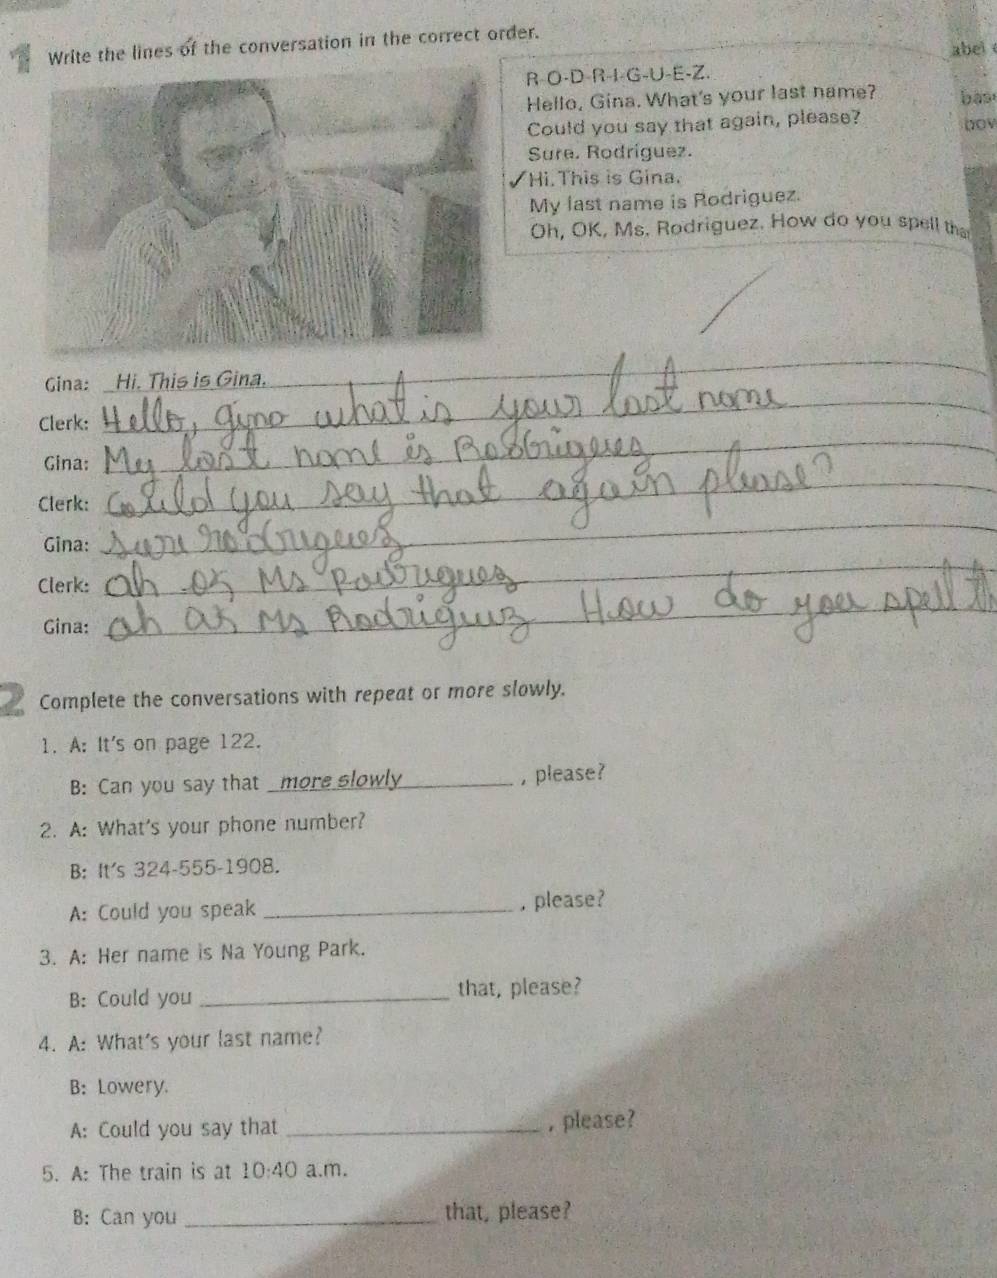 1 Write the lines of the conversation in the correct order.
abel
R-O-D-R-I-G-U-E-Z.
Hello, Gina. What's your last name?
Could you say that again, please?
Sure. Rodriguez.
✓Hi. This is Gina.
My last name is Rodriguez.
Oh, OK, Ms. Rodriguez. How do you spell tha
Gina: Hi. This is Gina.
Clerk: Hello, gino what is your last name
Gina: My last name is Rodrigues
Clerk: Could you say that again please?
Gina: Sure rodrigues
Clerk: ah ok Ms Rodrigues
Gina: ah ok Ms Rodriguez How do you spell th
2 Complete the conversations with repeat or more slowly.
1. A: It's on page 122.
B: Can you say that more slowly, please?
2. A: What's your phone number?
B: It's 324-555-1908.
A: Could you speak , please?
3. A: Her name is Na Young Park.
B: Could you that, please?
4. A: What's your last name?
B: Lowery.
A: Could you say that , please?
5. A: The train is at 10:40 a.m.
B: Can you that, please?